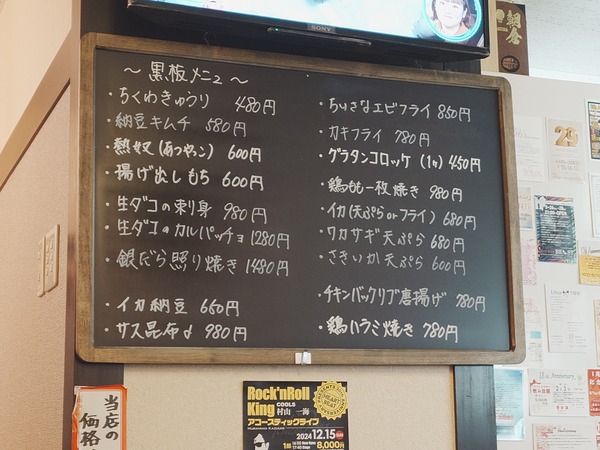 SONY
朝倉
〜 黒板メニュー 〜
・ちくわきゅうり 480円
・納豆キムチ 580円
・熱奴(あつやっこ) 600円
・揚げ出しもち 600円
・生ダコの刺身 980円
・生ダコのカルパッチョ 1280円
・銀だら照り焼き 1480円
・イカ納豆 650円
・サス昆布〆 980円
・ちいさなエビフライ 850円
・カキフライ 780円
・グラタンコロッケ(1ヶ) 450円
・鶏もも一枚焼き 980円
・イカ(天ぷらorフライ) 680円
・ワカサギ天ぷら 680円
・さきいか天ぷら 600円
・チキンバックリブ唐揚げ 780円
・鶏ハラミ焼き 780円
29
当店の
価格
Rock'nRoll
King
COOLS
村山 一海
アコースティックライブ
2024 12.15
8,000円